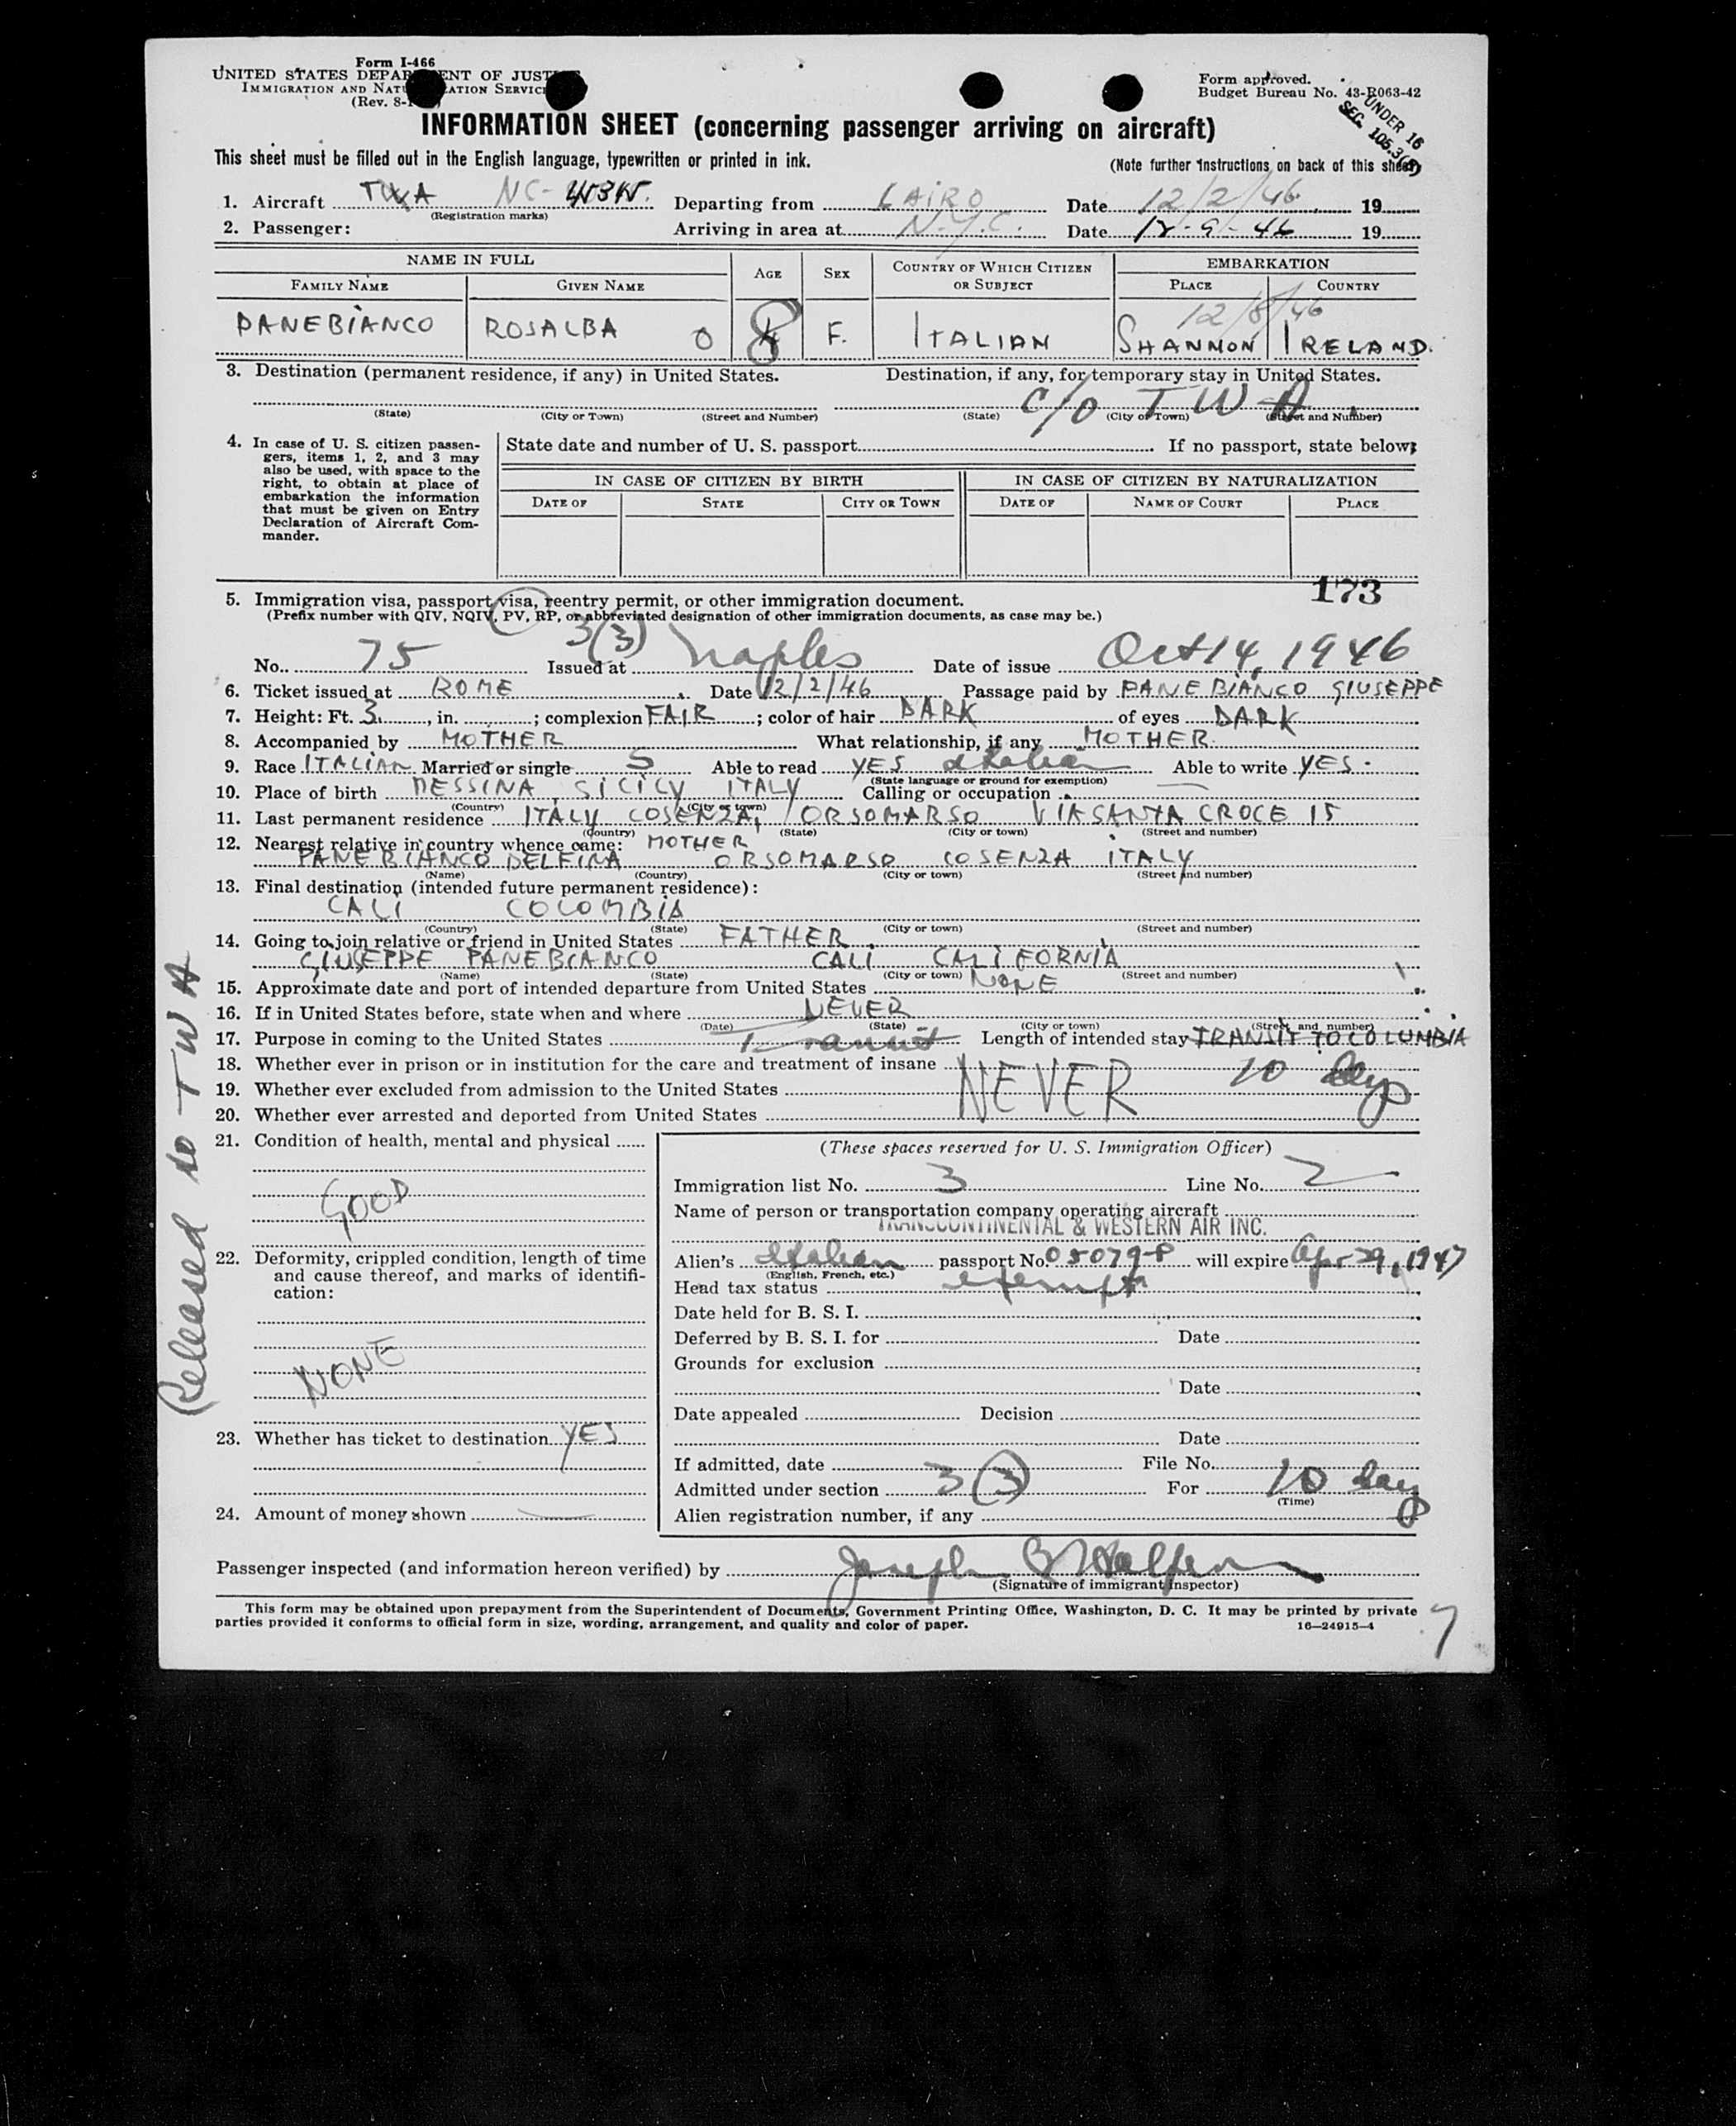 Form I-466
UNITED STATES DEPAR ENT OF JUST
IMMIGRATION AND NATU ATION SERVIC
(Rev. 8-1
Form approved.
Budget Bureau No. 43-R063-42
UNDER 16
SEC. 105.3(
INFORMATION SHEET (concerning passenger arriving on aircraft)
This sheet must be filled out in the English language, typewritten or printed in ink.
(Note further instructions on back of this sheet)
1. Aircraft TWA NC- Departing from CAIRO Date 12/2/46 19
(Registration marks)
2. Passenger: Arriving in area at N.Y.C. Date 12-9-46 19
NAME IN FULL AGE SEX COUNTRY OF WHICH CITIZEN OR SUBJECT EMBARKATION
FAMILY NAME GIVEN NAME PLACE COUNTRY
12/8/46
PANEBIANCO ROSALBA 0 8 F. ITALIAN SHANNON IRELAND.
3. Destination (permanent residence, if any) in United States. Destination, if any, for temporary stay in United States.
C/O TWA
(State) (City or Town) (Street and Number) (State) (City or Town) (Street and Number)
4. In case of U. S. citizen passen-
gers, items 1, 2, and 3 may
also be used, with space to the
right, to obtain at place of
embarkation the information
that must be given on Entry
Declaration of Aircraft Com-
mander.
State date and number of U. S. passport If no passport, state below:
IN CASE OF CITIZEN BY BIRTH IN CASE OF CITIZEN BY NATURALIZATION
DATE OF STATE CITY OR TOWN DATE OF NAME OF COURT PLACE
173
5. Immigration visa, passport visa, reentry permit, or other immigration document.
(Prefix number with QIV, NQIV, PV, RP, or abbreviated designation of other immigration documents, as case may be.)
3(3)
No. 75 Issued at Naples Date of issue Oct 14, 1946
6. Ticket issued at ROME Date 12/2/46 Passage paid by PANEBIANCO GIUSEPPE
7. Height: Ft. 3, in. ; complexion FAIR; color of hair DARK of eyes DARK
8. Accompanied by MOTHER What relationship, if any MOTHER
9. Race ITALIAN Married or single S Able to read YES Italian Able to write YES.
(State language or ground for exemption)
10. Place of birth MESSINA SICILY ITALY Calling or occupation —
(Country) (City or town)
11. Last permanent residence ITALY COSENZA, ORSOMARSO VIA SANTA CROCE 15
(Country) (State) (City or town) (Street and number)
12. Nearest relative in country whence came: MOTHER
PANEBIANCO DELFINA ORSOMARSO COSENZA ITALY
(Name) (Country) (City or town) (Street and number)
13. Final destination (intended future permanent residence):
CALI COLOMBIA
(Country) (State) (City or town) (Street and number)
14. Going to join relative or friend in United States FATHER
GIUSEPPE PANEBIANCO CALI CALIFORNIA
(Name) (State) (City or town) (Street and number)
15. Approximate date and port of intended departure from United States NONE
16. If in United States before, state when and where NEVER
(Date) (State) (City or town) (Street and number)
17. Purpose in coming to the United States Transit Length of intended stay TRANSIT TO COLUMBIA
10 days
18. Whether ever in prison or in institution for the care and treatment of insane
19. Whether ever excluded from admission to the United States NEVER
20. Whether ever arrested and deported from United States
21. Condition of health, mental and physical
GOOD
22. Deformity, crippled condition, length of time
and cause thereof, and marks of identifi-
cation:
NONE
23. Whether has ticket to destination YES
24. Amount of money shown —
(These spaces reserved for U. S. Immigration Officer)
Immigration list No. 3 Line No. 2
Name of person or transportation company operating aircraft
TRANSCONTINENTAL & WESTERN AIR INC.
Alien's Italian passport No. 05079-P will expire Apr 29, 1947
(English, French, etc.)
Head tax status exempt
Date held for B. S. I.
Deferred by B. S. I. for Date
Grounds for exclusion
Date
Date appealed Decision
Date
If admitted, date File No.
Admitted under section 3(3) For 10 days
(Time)
Alien registration number, if any
Released to TWA
Passenger inspected (and information hereon verified) by Joseph
(Signature of immigrant inspector)
This form may be obtained upon prepayment from the Superintendent of Documents, Government Printing Office, Washington, D. C. It may be printed by private
parties provided it conforms to official form in size, wording, arrangement, and quality and color of paper.
16—24915-4
7